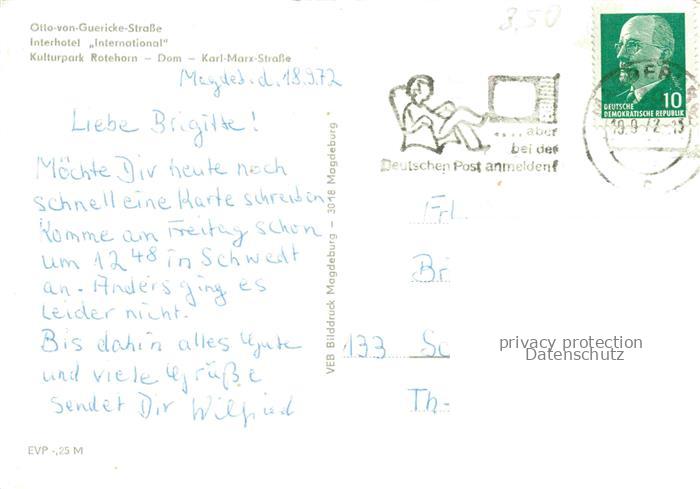 Otto-von-Guericke-Straße
Interhotel „International"
Kulturpark Rotehorn – Dom – Karl-Marx-Straße
3,50
Magdeb. d. 18.9.72
Liebe Brigitte!
Möchte Dir heute noch
schnell eine Karte schreiben
Komme am Freitag schon
um 12 48 in Schwedt
an. Anders ging es
leider nicht.
Bis dahin alles Gute
und viele Grüße
sendet Dir Wilfried
EVP -,25 M
VEB Bilddruck Magdeburg – 3018 Magdeburg
.... aber
bei der
Deutschen Post anmelden!
10
DEUTSCHE
DEMOKRATISCHE REPUBLIK
Frl
Bri
133 Sc
Th-
privacy protection
Datenschutz